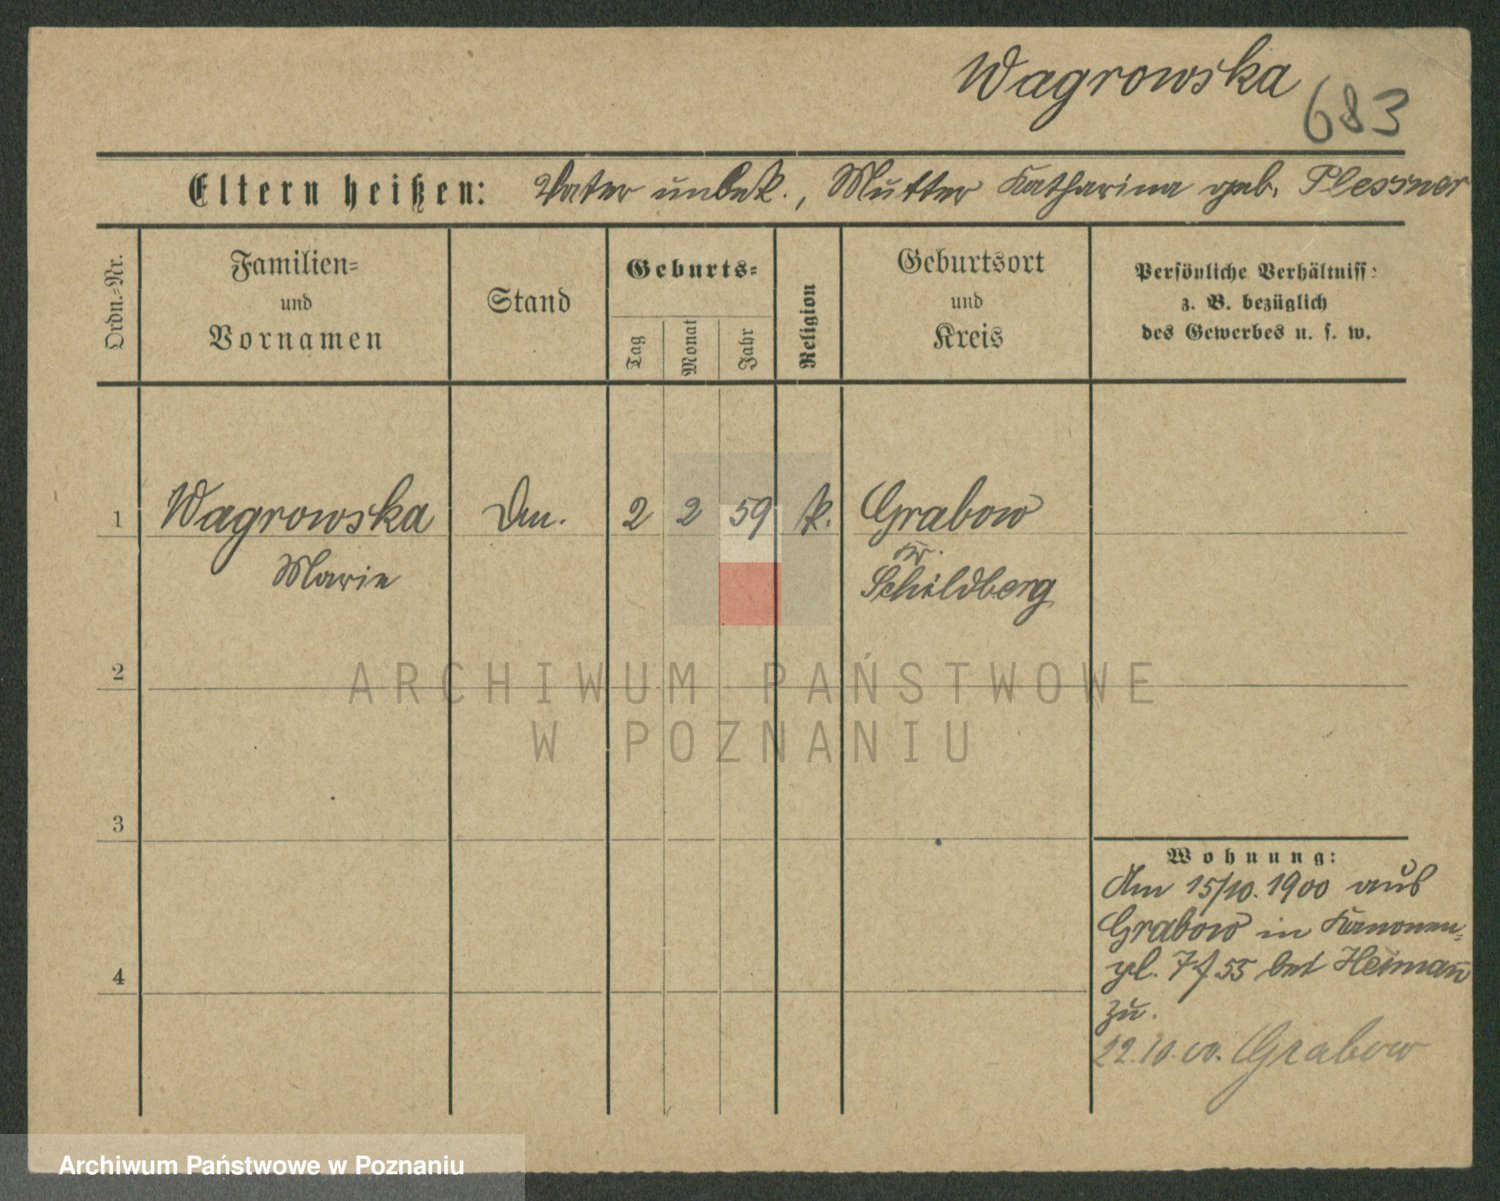 Wagrowska
683
Eltern heißen: Vater unbek., Mutter Katharina geb. Plessner
Ordn.-Nr.
Familien-
und
Vornamen
Stand
Geburts-
Tag
Monat
Jahr
Religion
Geburtsort
und
Kreis
Persönliche Verhältniss:
z. B. bezüglich
des Gewerbes u. s. w.
1 Wagrowska 2 2 59 k. Grabow
Marie
Kr.
Schildberg
2
3
4
ARCHIWUM PAŃSTWOWE
W POZNANIU
Wohnung:
Am 15/10. 1900 aus
Grabow in Kanonen-
pl. 7 55 bei Heimann
zu.
22.10.00. Grabow
Archiwum Państwowe w Poznaniu